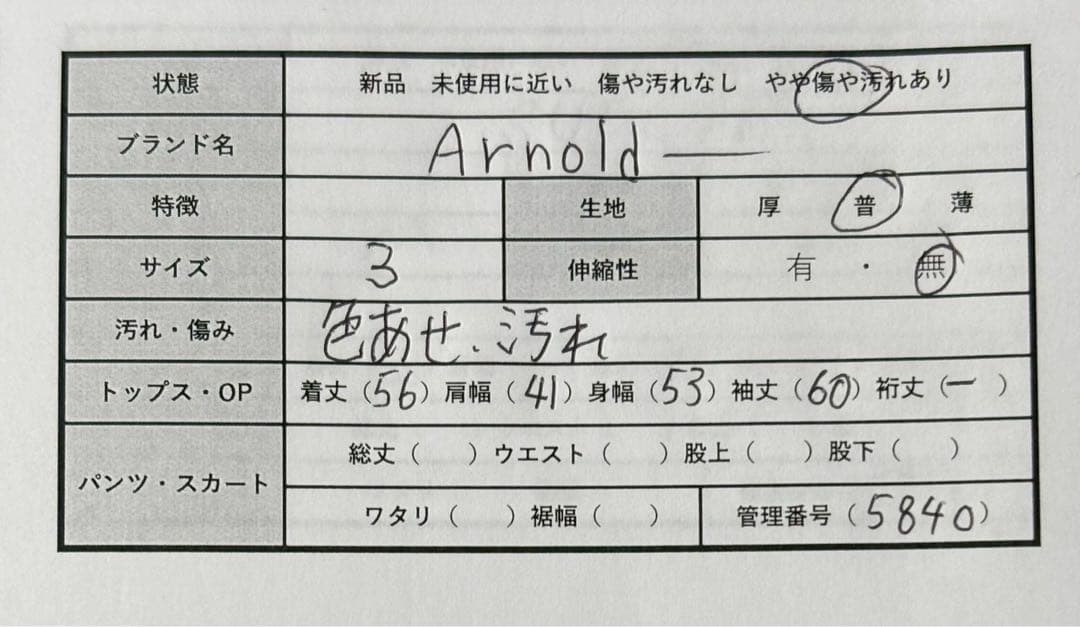 状態 新品 未使用に近い 傷や汚れなし やや傷や汚れあり
ブランド名 Arnold —
特徴 生地 厚 普 薄
サイズ 3 伸縮性 有 ・ 無
汚れ・傷み 色あせ、汚れ
トップス・OP 着丈(56) 肩幅(41) 身幅(53) 袖丈(60) 裄丈(ー )
パンツ・スカート 総丈( ) ウエスト( ) 股上( ) 股下( )
ワタリ( ) 裾幅( ) 管理番号(5840)